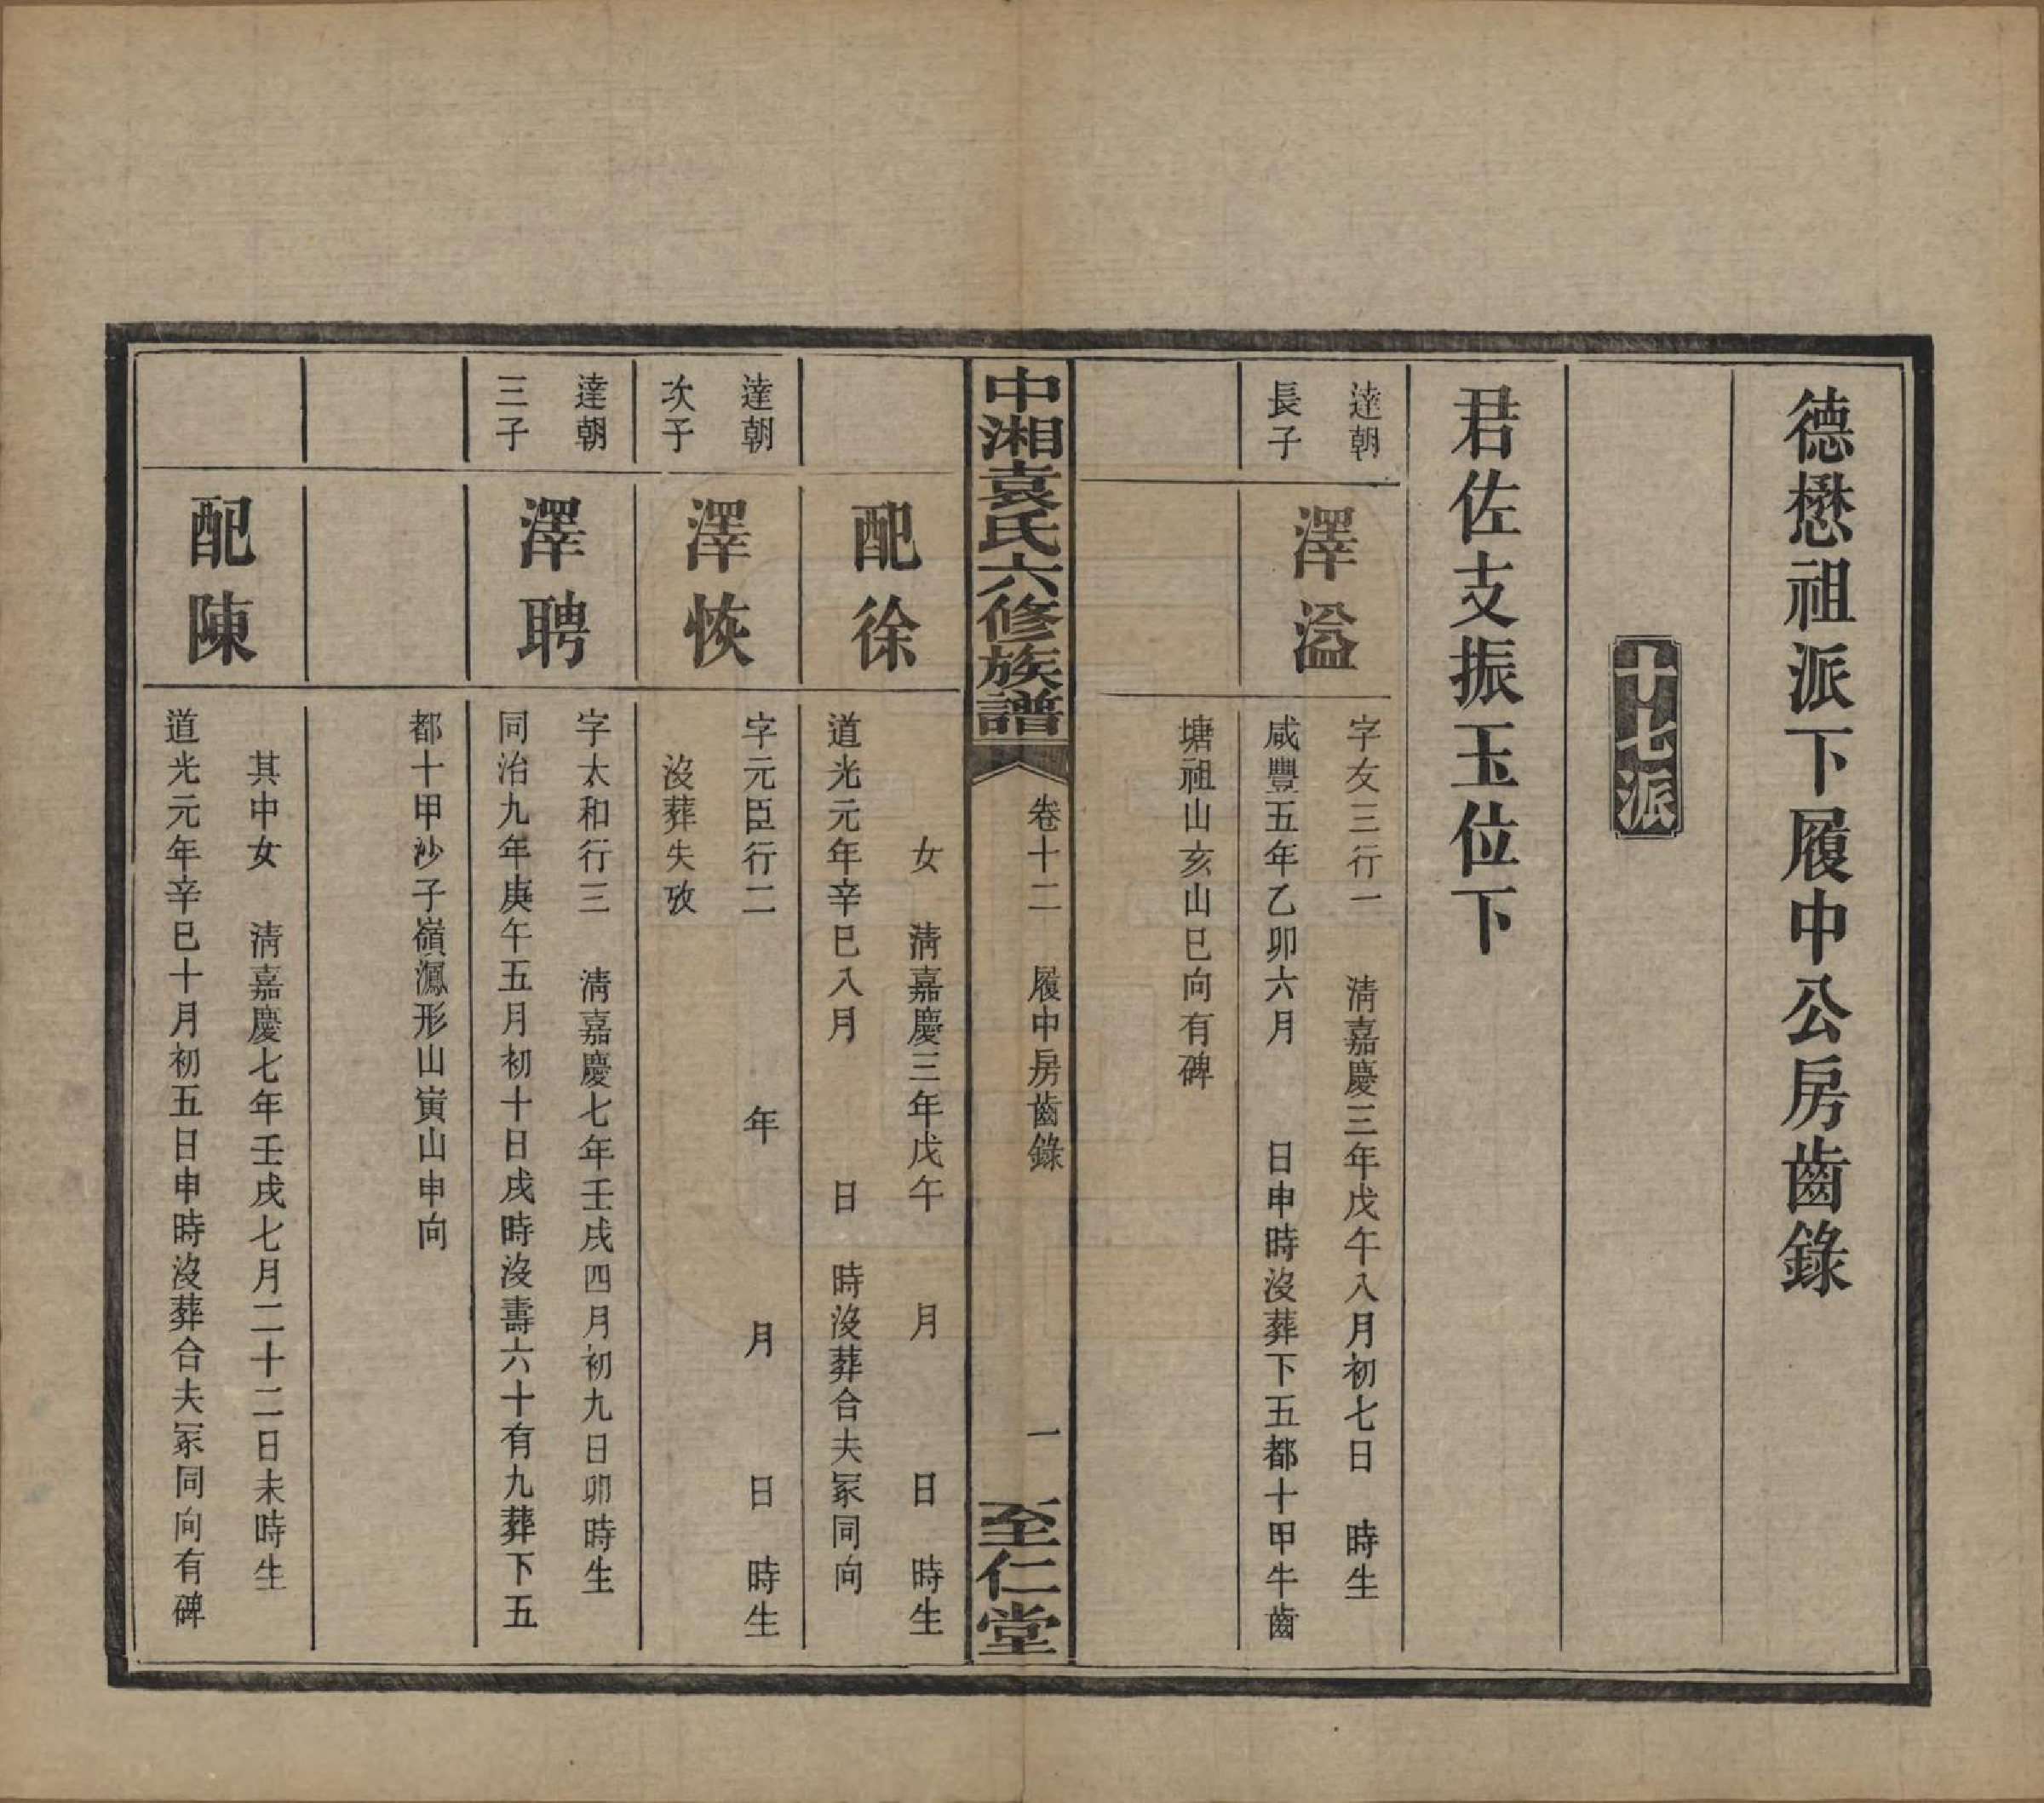 德懋祖派下履中公房齒錄
十七派
君佐支振玉位下
達朝
長子
澤溢
字友三行一　清嘉慶三年戊午八月初七日　時生
咸豐五年乙卯六月　　日申時沒葬下五都十甲牛齒
塘祖山亥山巳向有碑
中湘袁氏六修族譜
卷十二　履中房齒錄
一
至仁堂
配徐
女　清嘉慶三年戊午　　月　　　日　時生
道光元年辛巳八月　　　日　時沒葬合夫冢同向
達朝
次子
澤恢
字元臣行二　　　　年　　　　月　　　日　時生
沒葬失攷
達朝
三子
澤聘
字太和行三　清嘉慶七年壬戌四月初九日卯時生
同治九年庚午五月初十日戌時沒壽六十有九葬下五
都十甲沙子嶺鳳形山寅山申向
配陳
其中女　清嘉慶七年壬戌七月二十二日未時生
道光元年辛巳十月初五日申時沒葬合夫冢同向有碑